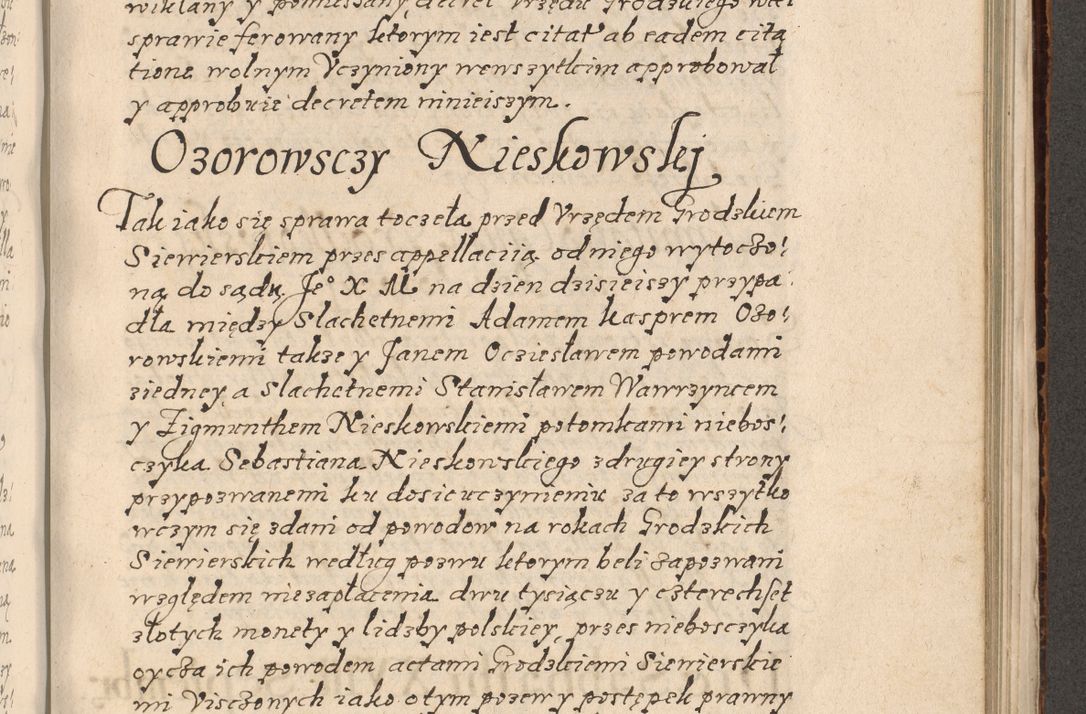 wikłany y pomieszany, decret Vrzędu Grodzkiego w tei
sprawie ferowany ktorym iest citat ab eadem cita
tione wolnym Vczyniony wewszytkim approbował
y approbuie decretem ninieiszym.
Ozorowsczy Nieskowskej
Tak iako się sprawa toczeła przed Vrzędem Grodzkiem
Siewierskiem przes appellaciią od niego wytoczo!
ną do sądu Je° X M na dzien dzisieiszy przypa
dła między Slachetnemi Adamem kasprem Ozo!
rowskiemi takze y Janem Ocziesławem powodami
ziedney a Slachetnemi Stanisławem Wawrzyncem
y Zigmunthem Nieskowskiemi potomkami niebos!
czyka Sebastiana Nieskowskiego z drugiey strony
przypozwanemi ku dosicuczynieniu za to wszytko
wczym się zdani od powodow na rokach Grodzkich
Siewierskich według pozwu ktorym beli zapozwani
względem niezapłacenia dwu tysiączu y czterechset
złotych monety y lidzby polskiey, przes niebosczyka
oycza ich powodem actami Grodzkiemi Siewierskie
mi Visczonych iako o tym pozew y postępek prawny